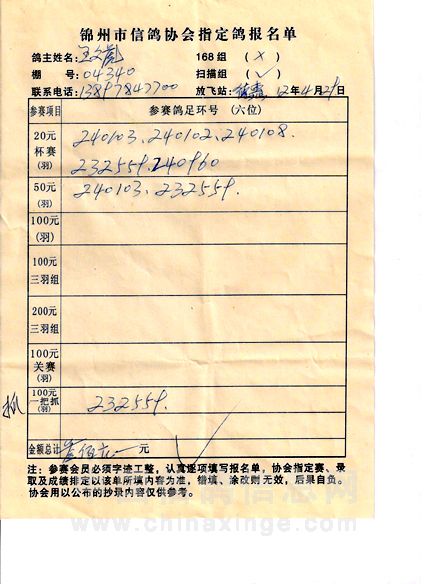 锦州市信鸽协会指定鸽报名单
鸽主姓名: 王文彪 168组 (×)
棚 号: 04340 扫描组 (✓)
联系电话: 13897847700 放飞站: 12年4月29日
参赛项目 参赛鸽足环号 (六位)
20元 杯赛 (羽) 240103、240102、240108、
232559、240960
50元 (羽) 240103、232559.
100元 (羽)
100元 三羽组
200元 三羽组
100元 关赛 (羽)
抓 100元 一把抓 (羽) 232559.
金额总计 元
注: 参赛会员必须字迹工整,认真逐项填写报名单,协会指定赛、录
取及成绩排定以该单所填内容为准,错填、涂改则无效,后果自负。
协会用以公布的抄录内容仅供参考。
www.chinaxinge.com